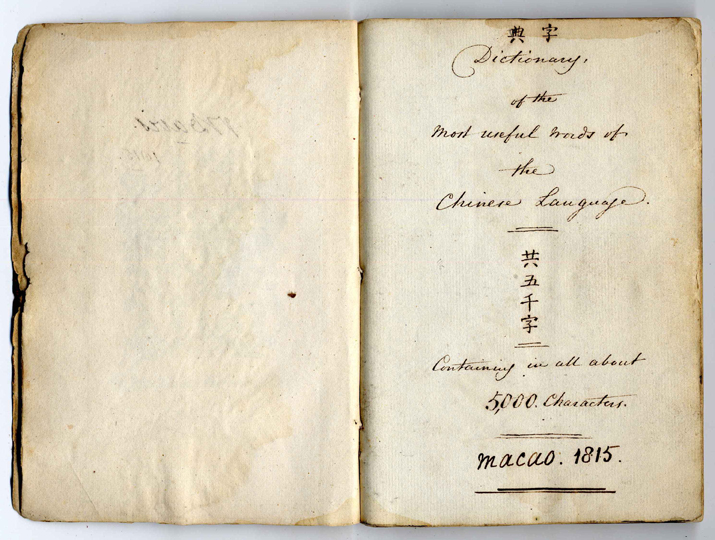 典 字
Dictionary,
of the
Most useful Words of
the
Chinese Language.
共五千字
Containing in all about
5,000. Characters.
Macao. 1815.